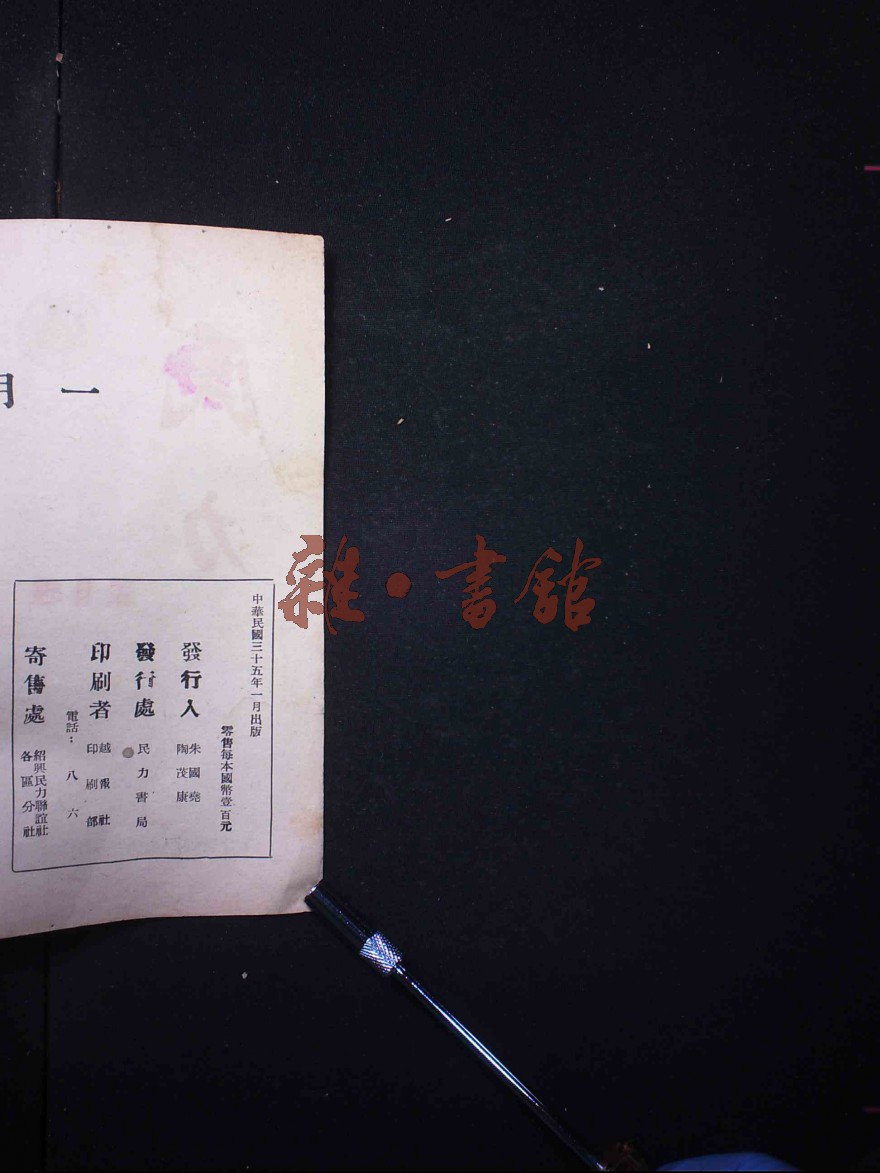 一月
中華民國三十五年一月出版
零售每本國幣壹百元
發行人 朱國堯 陶茂康
發行處 民力書局
印刷者 越報社印刷部
電話：八六
寄售處 紹興民力聯誼社各區分社
雜·書館